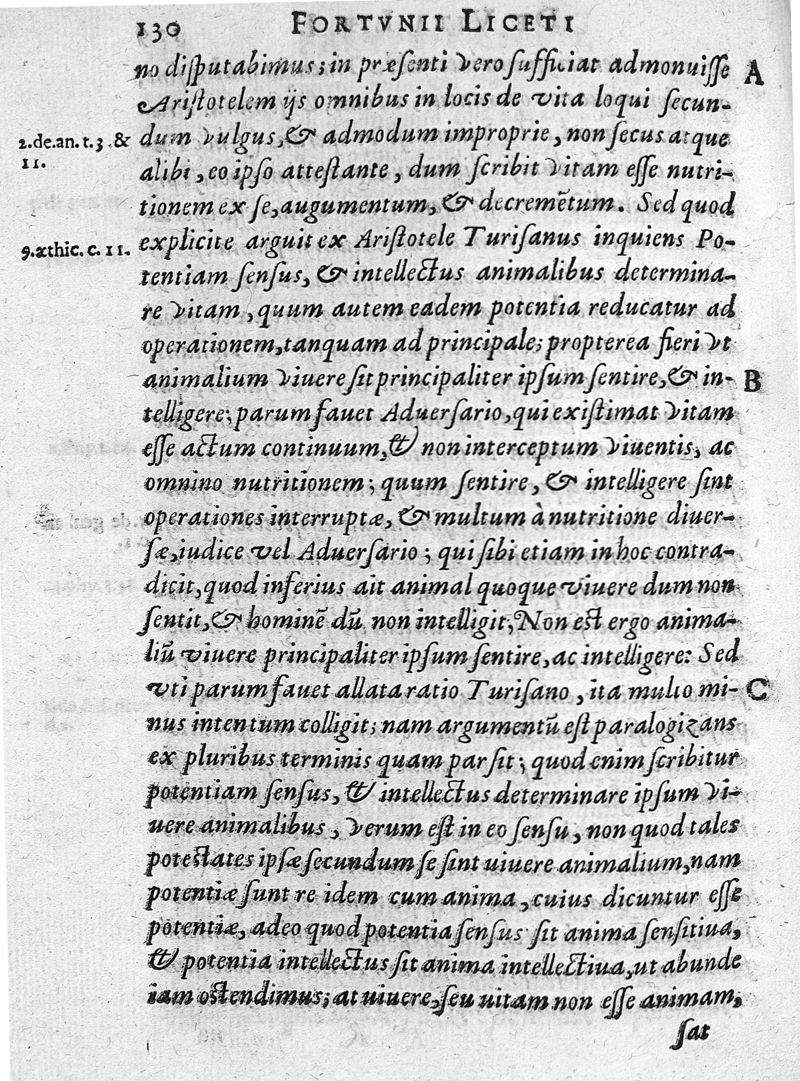 130 FORTVNII LICETI
no disputabimus; in præsenti vero sufficiat admonuisse A
Aristotelem ijs omnibus in locis de vita loqui secun-
2. de. an. t. 3. & dum vulgus, & admodum improprie, non secus atque
11. alibi, eo ipso attestante, dum scribit vitam esse nutri-
tionem ex se, augumentum, & decremẽtum. Sed quod
9. æthic. c. 11. explicite arguit ex Aristotele Turisanus inquiens Po-
tentiam sensus, & intellectus animalibus determina-
re vitam, quum autem eadem potentia reducatur ad
operationem, tanquam ad principale; propterea fieri vt
animalium viuere sit principaliter ipsum sentire, & in- B
telligere; parum fauet Aduersario, qui existimat vitam
esse actum continuum, & non interceptum viuentis, ac
omnino nutritionem; quum sentire, & intelligere sint
operationes interruptæ, & multum à nutritione diuer-
sæ, iudice vel Aduersario; qui sibi etiam in hoc contra-
dicit, quod inferius ait animal quoque viuere dum non
sentit, & hominẽ dũ non intelligit; Non est ergo anima-
liũ viuere principaliter ipsum sentire, ac intelligere: Sed
vti parum fauet allata ratio Turisano, ita multo mi- C
nus intentum colligit; nam argumentũ est paralogizans
ex pluribus terminis quam par sit; quod enim scribitur
potentiam sensus, & intellectus determinare ipsum vi-
uere animalibus, verum est in eo sensu, non quod tales
potestates ipsæ secundum se sint uiuere animalium, nam
potentiæ sunt re idem cum anima, cuius dicuntur esse
potentiæ, adeo quod potentia sensus sit anima sensitiua,
& potentia intellectus sit anima intellectiua, ut abunde
iam ostendimus; at uiuere, seu uitam non esse animam,
sat